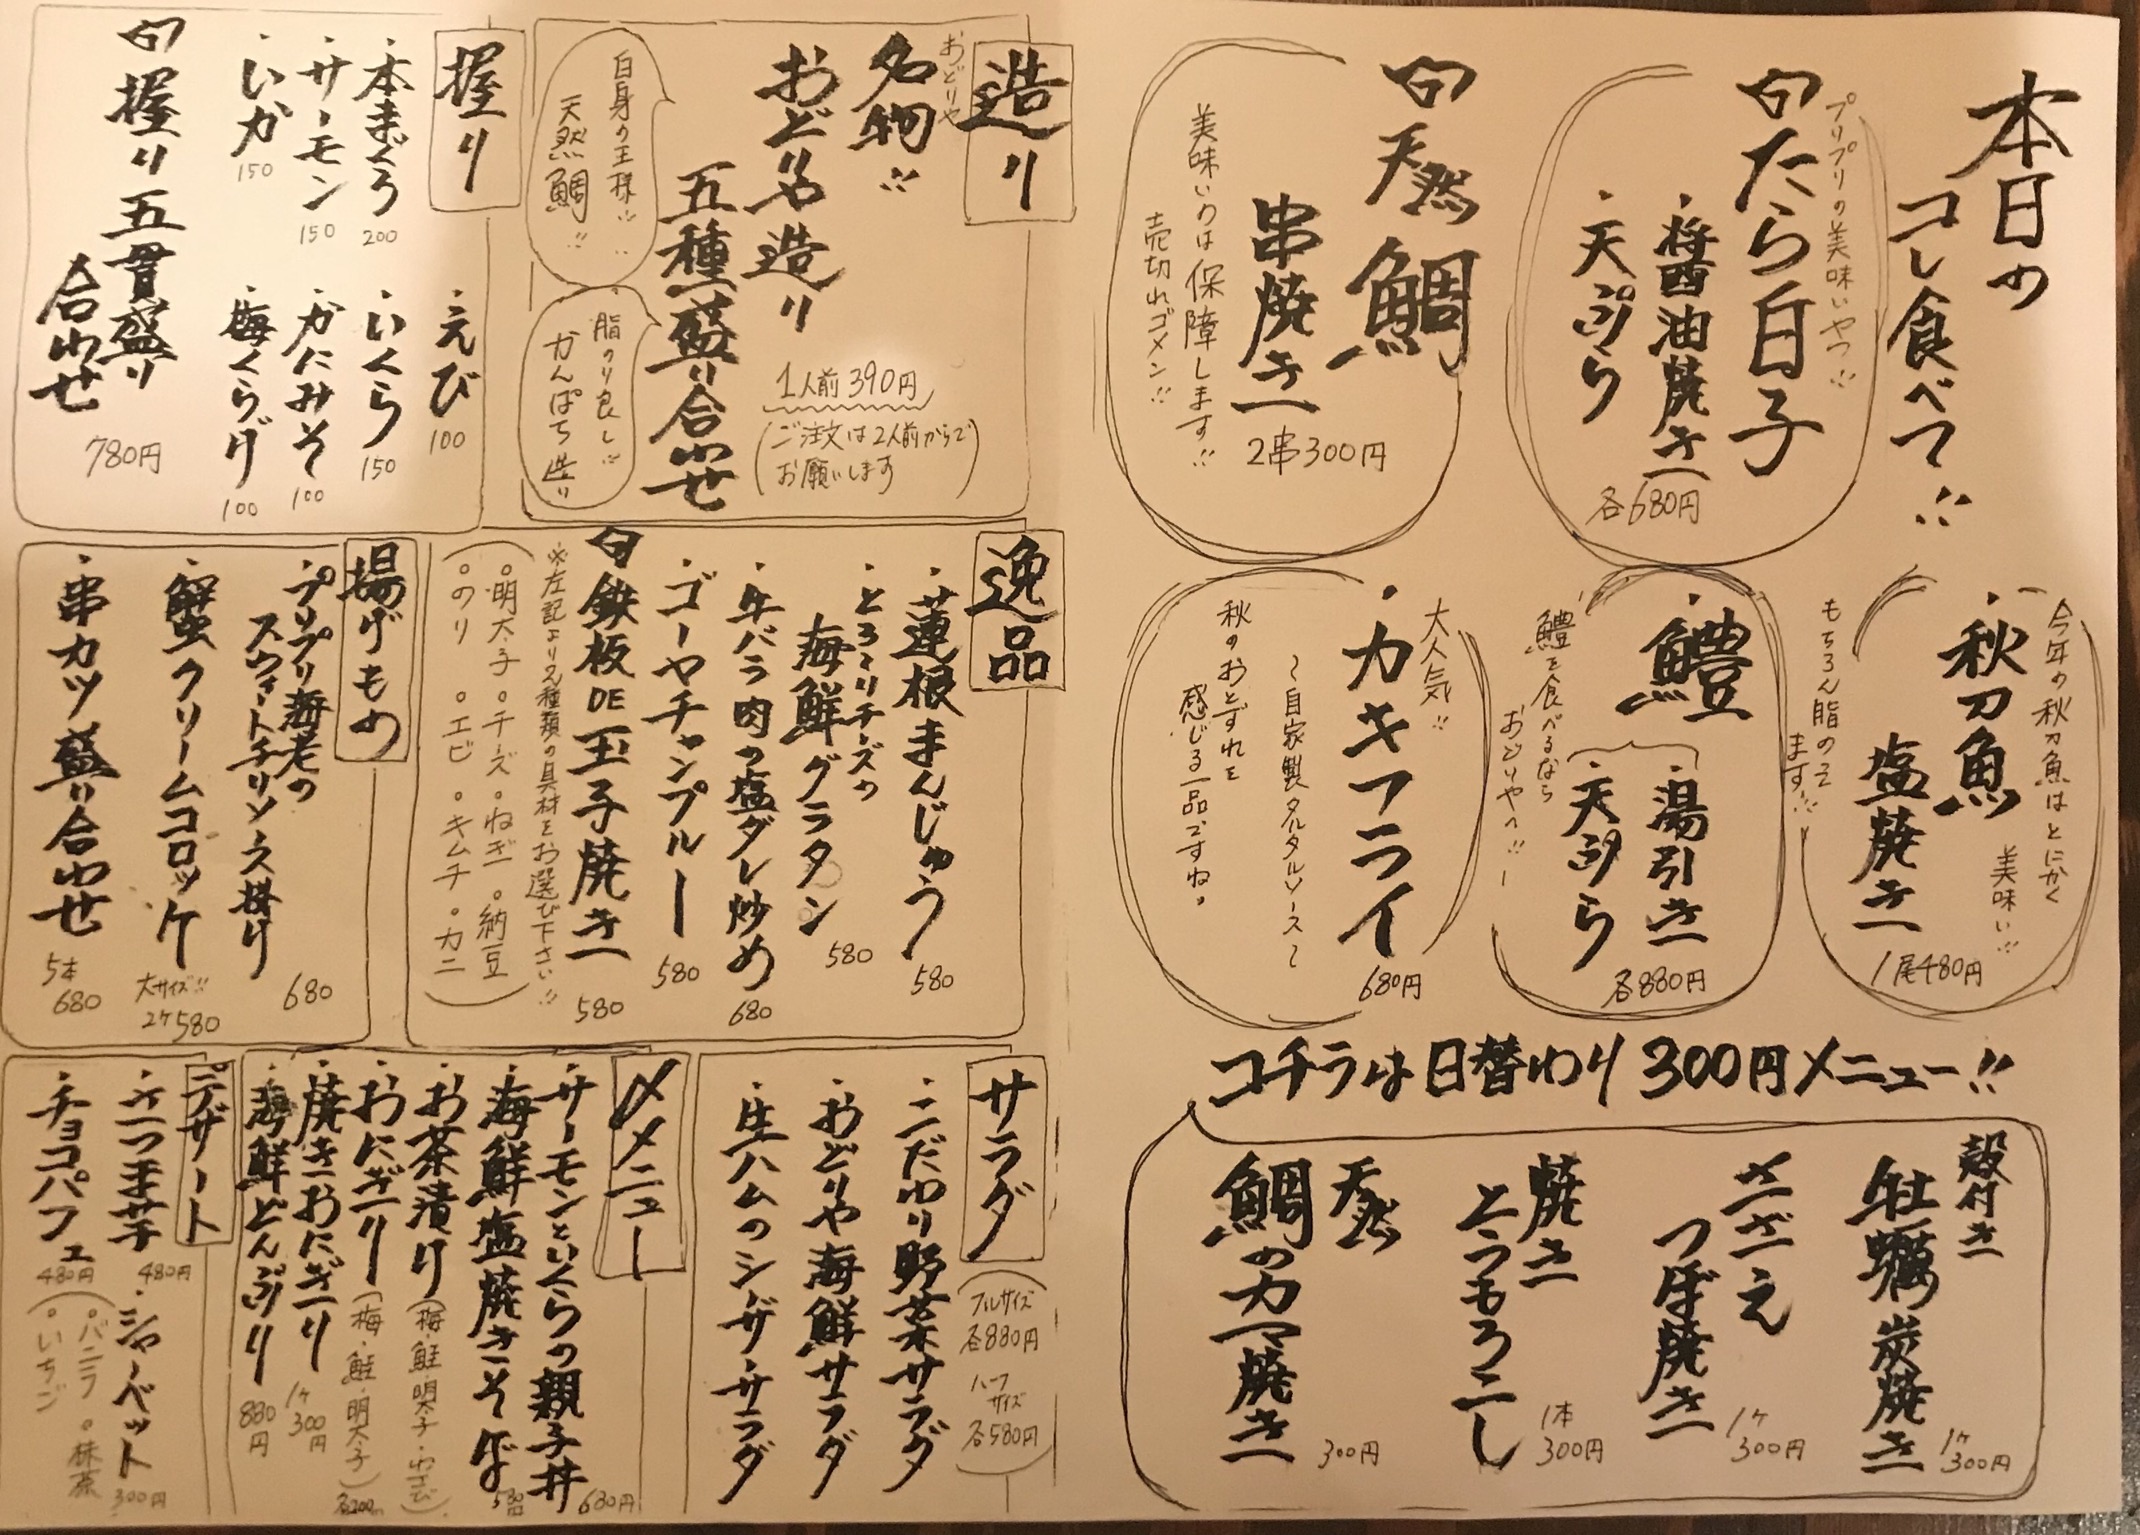 本日の
コレ食べて!!
旬たら白子
プリプリの美味いやつ!!
・醤油焼き
・天ぷら
各680円
旬天然鯛
串焼き
2串300円
美味いのは保障します!!
売切れゴメン!!
・秋刀魚
塩焼き
1尾480円
今年の秋刀魚はとにかく
美味い!!
もちろん脂のって
ます!!
・鱧
・湯引き
・天ぷら
各880円
鱧を食べるなら
おどりやへ!!
・カキフライ
680円
大人気!!
〜自家製タルタルソース〜
秋のおとずれを
感じる一品ですね。
コチラは日替わり300円メニュー!!
殻付き
牡蠣炭焼き
1ケ
300円
さざえ
つぼ焼き
1ケ
300円
焼き
とうもろこし
1本
300円
天然
鯛のカマ焼き
300円
造り
おどりや
名物!!
おどりや名造り
五種盛り合わせ
1人前390円
(ご注文は2人前からで
お願いします)
白身の王様!!
天然鯛!!
脂のり良し!!
かんぱち造り
握り
・本まぐろ
200
・サーモン
150
・いか
150
・えび
100
・いくら
150
・かにみそ
100
・梅くらげ
100
旬握り五貫盛り
合わせ
780円
逸品
・蓮根まんじゅう
580
・とろ〜りチーズの
海鮮グラタン
580
・牛バラ肉の塩ダレ炒め
680
・ゴーヤチャンプルー
580
旬鉄板DE玉子焼き
580
※左記より2種類の具材をお選び下さい!!
。明太子。チーズ。ねぎ。納豆
。のり。エビ。キムチ。カニ
揚げもの
・プリプリ海老の
スウィートチリソース掛け
680
・蟹クリームコロッケ
大サイズ!!
2ケ580
・串カツ盛り合わせ
5本
680
サラダ
(フルサイズ
各880円
ハーフ
サイズ
各580円)
・こだわり野菜サラダ
・おどりや海鮮サラダ
・生ハムのシーザーサラダ
〆メニュー
・サーモンといくらの親子丼
680円
・海鮮塩焼きそば
・お茶漬け(梅・鮭・明太子・わさび)
・おにぎり(梅・鮭・明太子)
各200
・焼きおにぎり
1ケ
300円
・海鮮どんぶり
880
円
デザート
・さつま芋
480円
・シャーベット
300円
・チョコパフェ
480円
(。バニラ。抹茶
。いちご